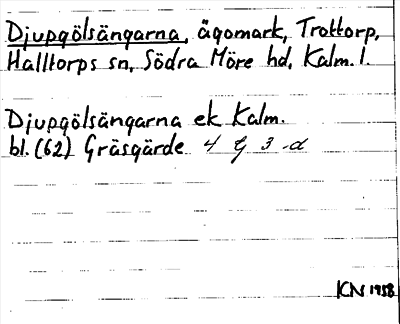 Djupgölsängarna, ägomark, Trottorp,
Halltorps sn, Södra Möre hd, Kalm. l.
Djupgölsängarna ek Kalm.
bl. (62) Gräsgärde 4 G 3 -d
KN 1958